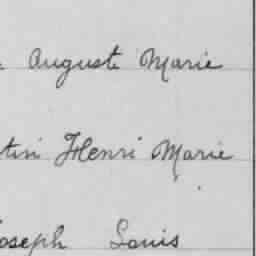 Auguste Marie
tin Henri Marie
Joseph Louis